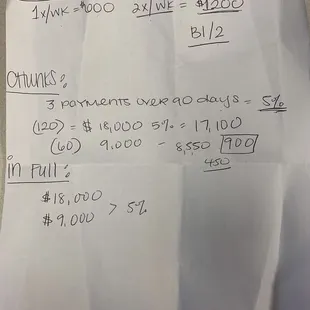 1x/WK = $600 2x/WK = $1200
B1/2
Chunks:
3 payments over 90 days = 5%
(120) = $18,000 5% = 17,100
(60) 9,000 - 8,550 900
450
in Full:
$18,000
$9,000 > 5%